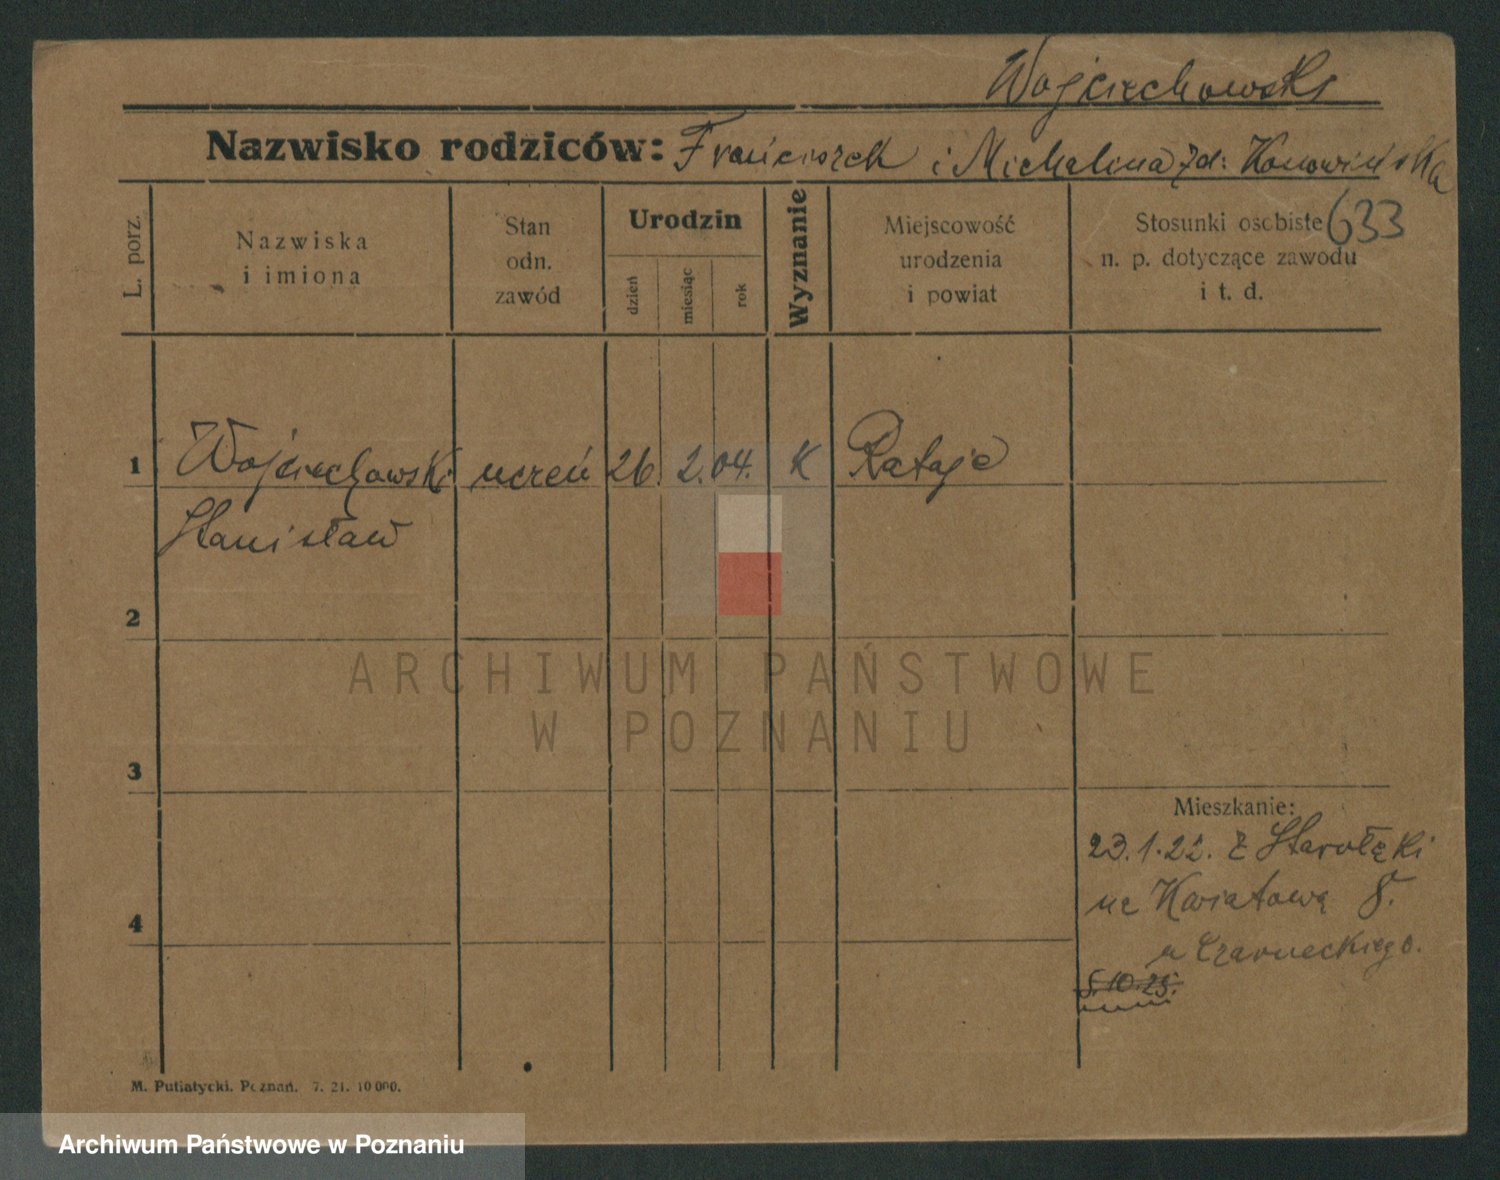 Wojciechowski
Nazwisko rodziców: Franciszek i Michalina zd:
633
L. porz.
Nazwiska
i imiona
Stan
odn.
zawód
Urodzin
dzień
miesiąc
rok
Wyznanie
Miejscowość
urodzenia
i powiat
Stosunki osobiste
n. p. dotyczące zawodu
i t. d.
1 Wojciechowski uczeń 26. 2. 04. K Rataje
Stanisław
2
3
4
ARCHIWUM PAŃSTWOWE
W POZNANIU
Mieszkanie:
23.1.22. z Starołęki
na Kwiatową 8.
u Czarneckiego.
5.10.25.
M. Putiatycki. Poznań. 7. 21. 10 000.
Archiwum Państwowe w Poznaniu